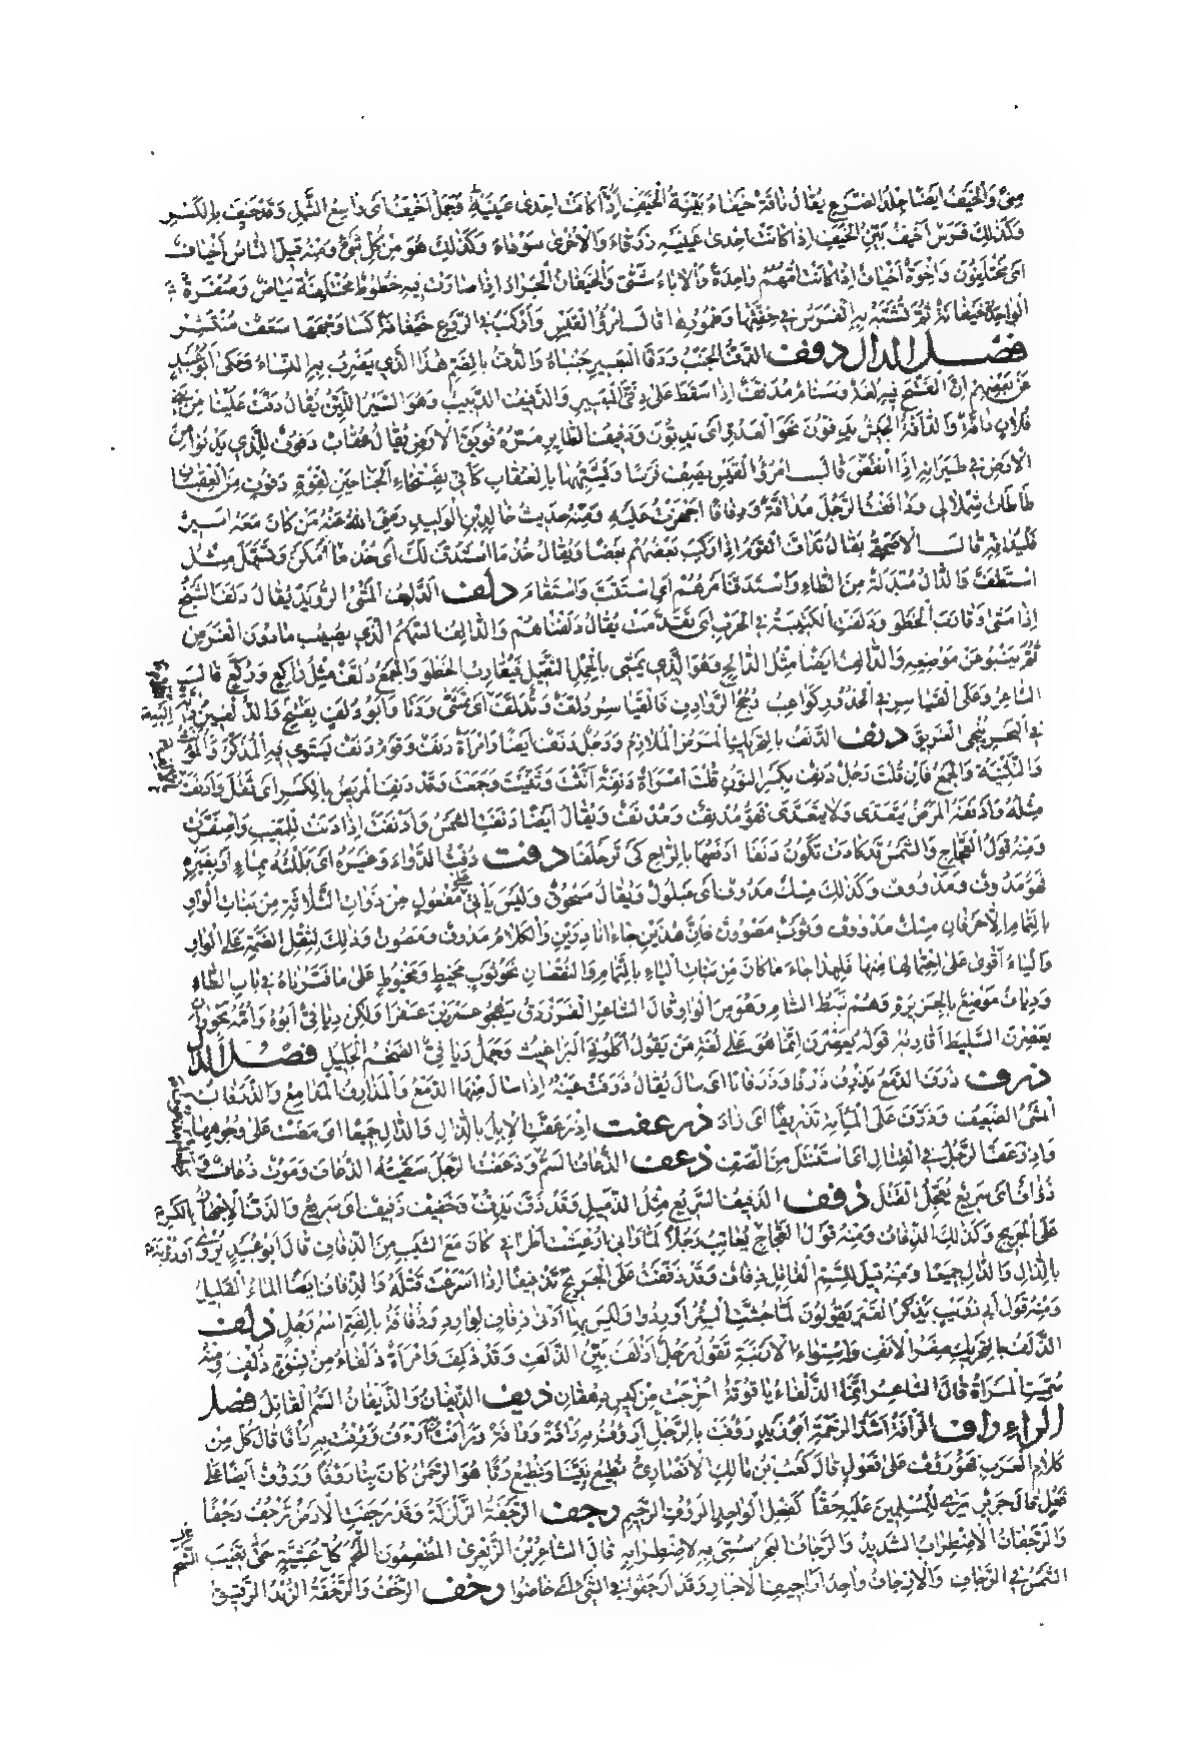 منىً وَالْخَيَفُ ايضا جلد الضرع يقال ناقة خيفاء بينة الخيف اذا كانت احدى عينيه فجمل اخيف اى واسع الثيل وقد خيف بالكسر
وكذلك فرس اخيف بين الخيف اذا كانت احدى عينيه زرقاء والاخرى سوداء وكذلك هو من كل شئ ومنه قيل الناس اخياف
اى مختلفون واخوة اخياف اذا كانت امهم واحدة والاباء شتى والخيفان الجراد اذا صارت فيه خطوط مختلفة بياض وصفرة
الواحدة خيفانة ثم تشبه به الفرس في خفتها وضمورها قال امرؤ القيس واركب في الروع خيفانة كسا وجهها سعف منتشر
فصل الدال دفف الدف الجنب ودفا البعير جنباه والدف بالضم هذا الذي يضرب به النساء وحكى ابو عبيد
عن بعضهم ان الفتح فيه لغة وسنام مدفف اذا سقط على دفى البعير والدفيف الدبيب وهو السير اللين يقال دفت علينا من بنى
فلان دافة والدافة الجيش يدفون نحو العدو اى يدبون ودفيف الطاير مره فويق الارض يقال عقاب دفوف للذي يدنو من
الارض في طيرانه اذا انقض قال امرؤ القيس يصف فرسا ويشبهها بالعقاب كأنى بفتخاء الجناحين لقوة دفوف من العقبان
طاطات شملالى ودافت الرجل مدافة ودفافا اجهزت عليه ومنه حديث خالد بن الوليد رضى الله عنه من كان معه اسير
فليدافه قال الاصمعى يقال تداف القوم اذا ركب بعضهم بعضا ويقال خذ ما استدف لك اى خذ ما امكن وتسهل مثل
استطف والدال مبدلة من الطاء واستدف امرهم اى استتب واستقام دلف الدليف المشى الرويد يقال دلف الشيخ
اذا مشى وقارب الخطو ودلفت الكتيبة في الحرب اى تقدمت يقال دلفناهم والدالف السهم الذي يصيب ما دون الغرض
ثم ينبو عن موضعه والدالف ايضا مثل الدالح وهو الذي يمشى بالحمل الثقيل فيقارب الخطو والجمع دلف مثل راكع وركع قال
الشاعر وعلى القياسر في الخدور كواعب رجح الروادف فالقياسر دلف وتدلف اى تمشى ودنا وابو دلف بفتح والدلفين دابة
في البحر ينجى الغريق دنف الدنف بالتحريك المرض الملازم ورجل دنف ايضا وامرأة دنف وقوم دنف يستوى فيه المذكر والمؤنث
والتثنية والجمع فان قلت رجل دنف بكسر النون قلت امرأة دنفة انثت وثنيت وجمعت وقد دنف المريض بالكسر اى ثقل وادنف
مثله وادنفه المرض يتعدى ولا يتعدى فهو مدنف ومدنف ويقال ايضا دنفت الشمس وادنفت اذا دنت للمغيب واصفرت
ومنه قول العجاج والشمس قد كادت تكون دنفا ادفعها بالراح كى تزحلفا دوف دفت الدواء وغيره اى بللته بماء او بغيره
فهو مدوف ومدووف وكذلك مسك مدووف اى مبلول ويقال مسحوق وليس يأتى مفعول من ذوات الثلاثة من بنات الواو
بالتمام الا حرفان مسك مدووف وثوب مصوون فان هذين جاءا نادرين والكلام مدوف ومصون وذلك لثقل الضمة على الواو
والياء اقوى على احتمالها منها فلهذا جاء ما كان من بنات الياء بالتمام والنقصان نحو ثوب مخيط ومخيوط على ما فسرناه في باب الطاء
ودياف موضع بالجزيرة وهم نبط الشام وهو من الواو قال الشاعر الفرزدق يهجو عمر بن عفرا ولكن ديافى ابوه وامه بحوران
يعصرن السليط اقاربه قوله يعصرن انما هو على لغة من يقول اكلونى البراغيث وجمل ديافى الضخم الجليل فصل الذال
ذرف ذرف الدمع يذرف ذرفا وذرفانا اى سال يقال ذرفت عينه اذا سال منها الدمع والمذارف المدامع والذرفان
المشى الضعيف وذرف على المأية تذريفا اى زاد ذرعف اذرعفت الابل بالذال والدال جميعا اى مضت على وجوهها
واذرعف الرجل في القتال اى استنتل من الصف ذعف الذعاف السم وذعفت الرجل سقيته الذعاف وموت ذعاف و
ذؤاف اى سريع يعجل القتل ذفف الذفيف السريع مثل الذميل وقد ذف يذف وخفيف ذفيف اى سريع والذف الاجهاز
على الجريح وكذلك الذفاف ومنه قول العجاج يعاتب رجلا لما رآنى ارعشت اطرافى كان مع الشيب من الذفاف قال ابو عبيد يروى
بالذال والدال جميعا ومنه قيل للسم القاتل ذفاف وقد ذففت على الجريح تذفيفا اذا اسرعت قتله والذفاف ايضا الماء القليل
ومنه قول ابى ذويب يذكر القبر يقولون لما جشت البئر اوردوا وليس بها ادنى ذفاف لوارد وذفافة بالضم اسم رجل ذلف
الذلف بالتحريك صغر الانف واستواء الارنبة تقول رجل اذلف بين الذلف وقد ذلف وامرأة ذلفاء من نسوة ذلف ومنه
سميت المرأة قال الشاعر انما الذلفاء ياقوتة اخرجت من كيس دهقان ذيف الذيفان والذيفان السم القاتل فصل
الراء رأف الرأفة اشد الرحمة ابو زيد رؤفت بالرجل ارؤف به رأفة ورآفة ورأفت ارأف ورئفت به رأفا قال كل من
كلام العرب فهو رؤف على فعول قال كعب بن مالك الانصارى نطيع نبينا ونطيع ربا هو الرحمن كان بنا رؤفا ورؤف ايضا على
فعل قال جرير يرى للمسلمين عليه حقا كفعل الوالد الرؤف الرحيم رجف الرجفة الزلزلة وقد رجفت الارض ترجف رجفا
والرجفان الاضطراب الشديد والرجاف البحر سمى به لاضطرابه قال الشاعر بن الزبعرى المطعمون اللحم كل عشية حتى تغيب
الشمس في الرجاف والارجاف واحد اراجيف الاخبار وقد ارجفوا في الشئ اى خاضوا رخف الرخف والرخفة الزبد الرقيق